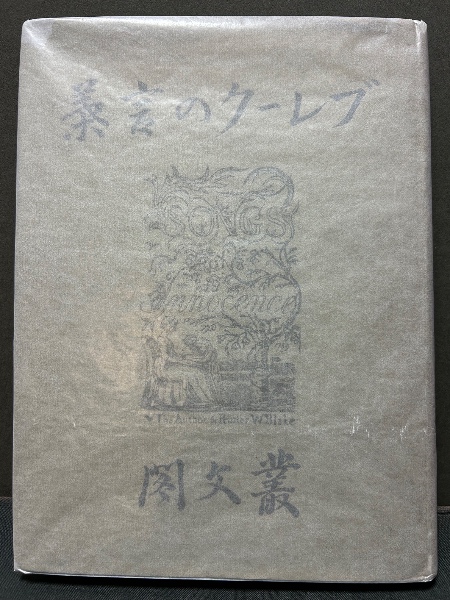 ブレークの言葉
SONGS
of
Innocence
The Author & Printer W Blake
叢文閣